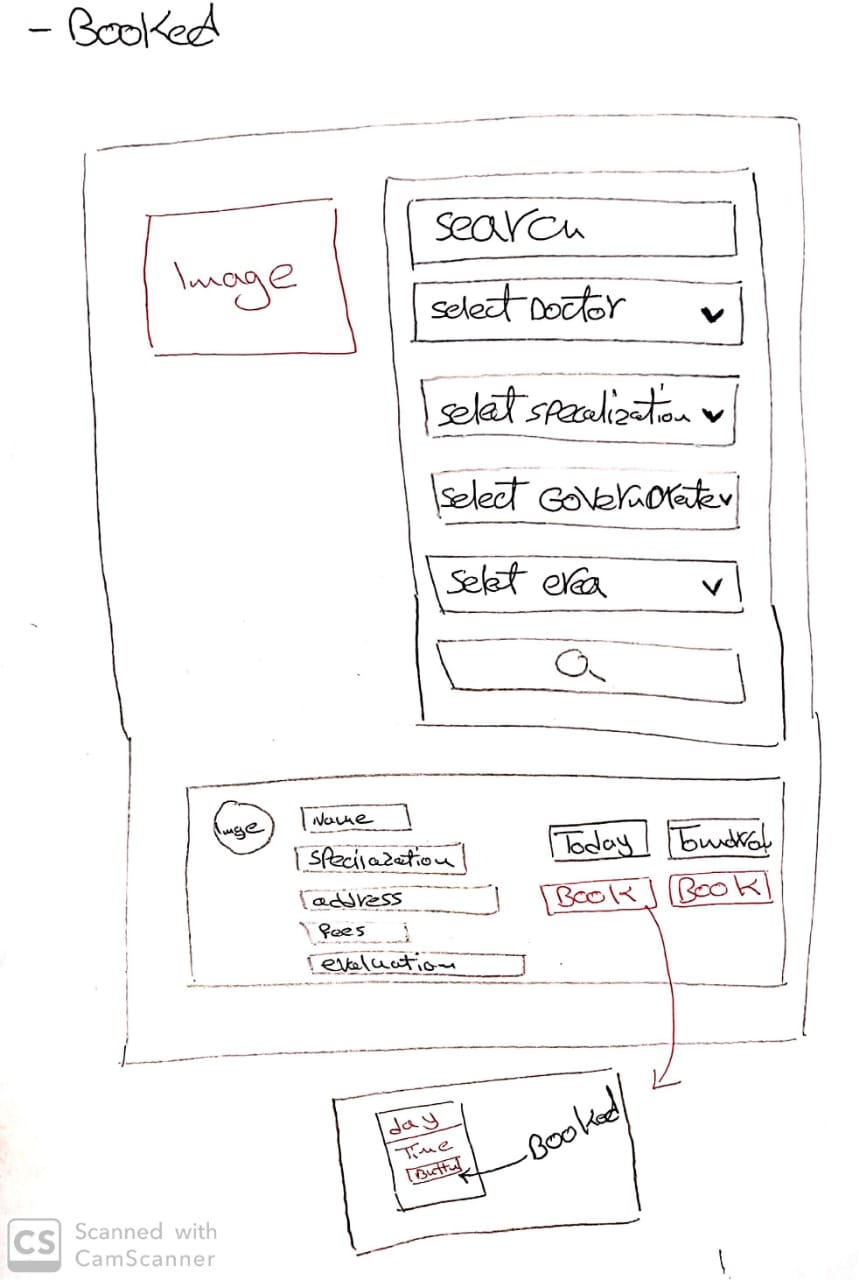 - Booked
Image
search
select Doctor
select specalization
select Governorate
Selet area
Image
Name
specilazation
address
fees
evaluation
Today
Book
Book
day
Time
Button
Booked
CS
Scanned with
CamScanner